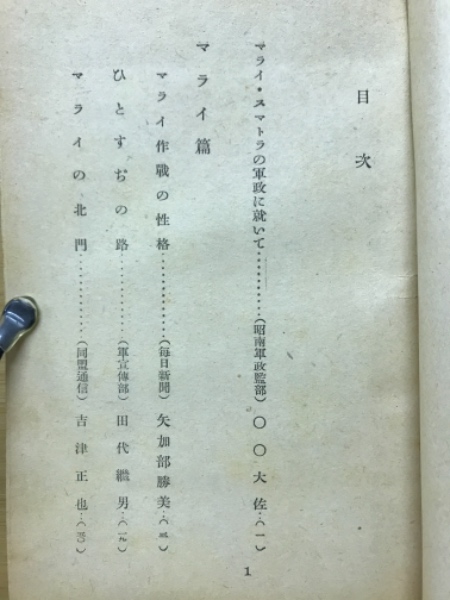 目次
マライ・スマトラの軍政に就いて…………(昭南軍政監部)〇〇大佐…(一)
マライ篇
マライ作戰の性格…………(每日新聞)矢加部勝美…
ひとすぢの路…………(軍宣傳部)田代繼男…(一九)
マライの北門…………(同盟通信)吉津正也…
1